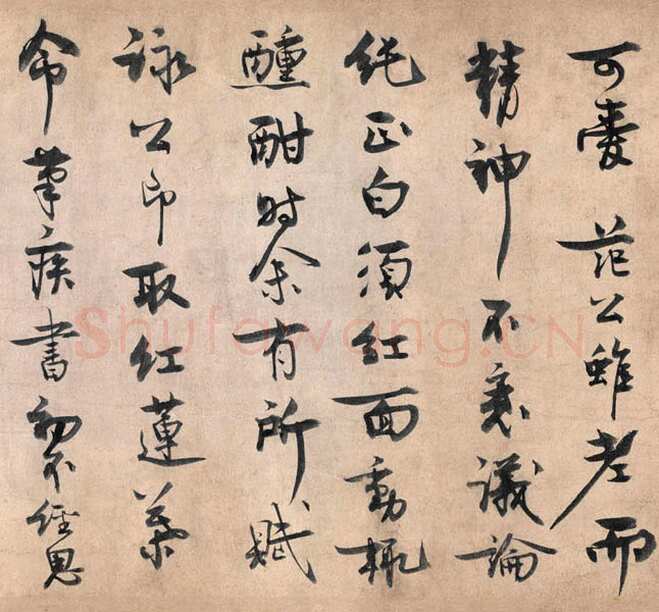 可愛范公雖老而
精神不衰議論
純正白須紅面動輒
醺酣时余有所賦
詠公即取紅蓮葉
命筆疾書初不經思
Shufawang.CN